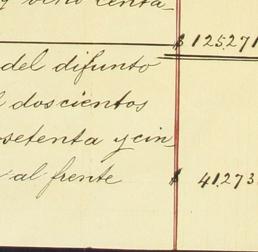 y ocho centa-
$ 125.271
del difunto
doscientos
setenta y cin-
al frente $ 41.273